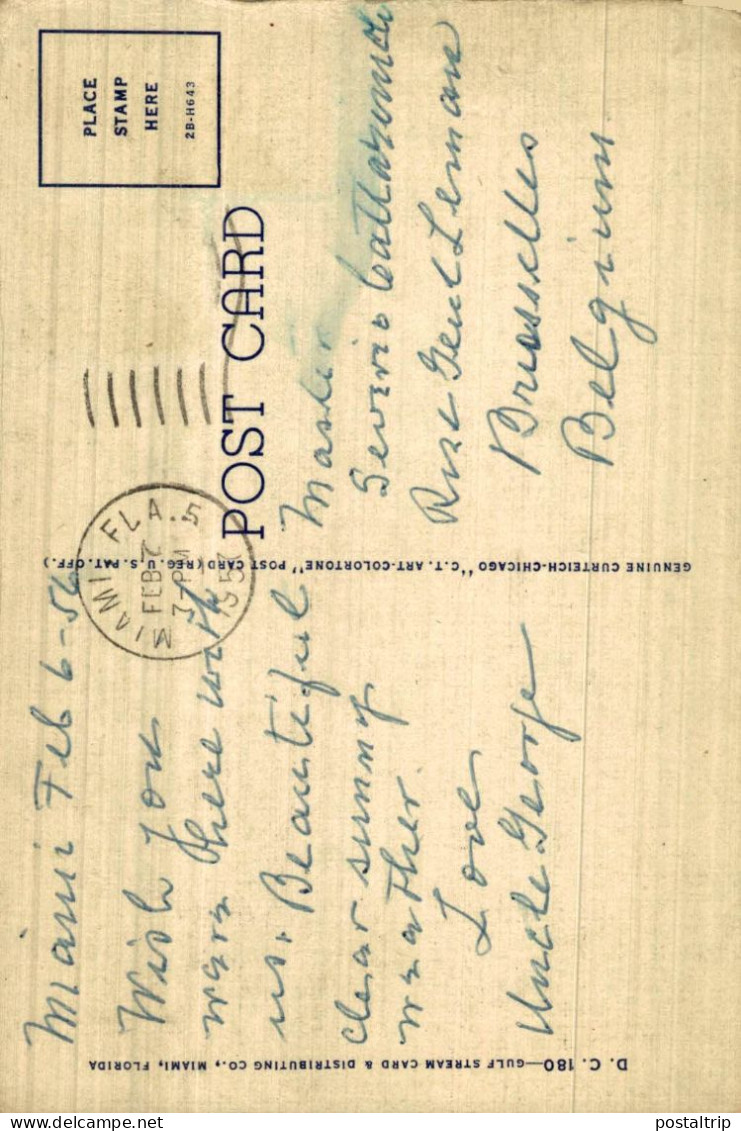 Miami Feb 6-56
Wish You
were here with
us. Beautiful
clear sunny
weather.
Love
Uncle George
D. C. 180—GULF STREAM CARD & DISTRIBUTING CO., MIAMI, FLORIDA
GENUINE CURTEICH-CHICAGO "C.T. ART-COLORTONE" POST CARD (REG. U. S. PAT. OFF.)
MIAMI FLA. 5
FEB 7
3-PM
195
POST CARD
PLACE
STAMP
HERE
2B-H643
Master
Rue Genl Leman
Brusselles
Belgium
postaltrip
delcampe.net